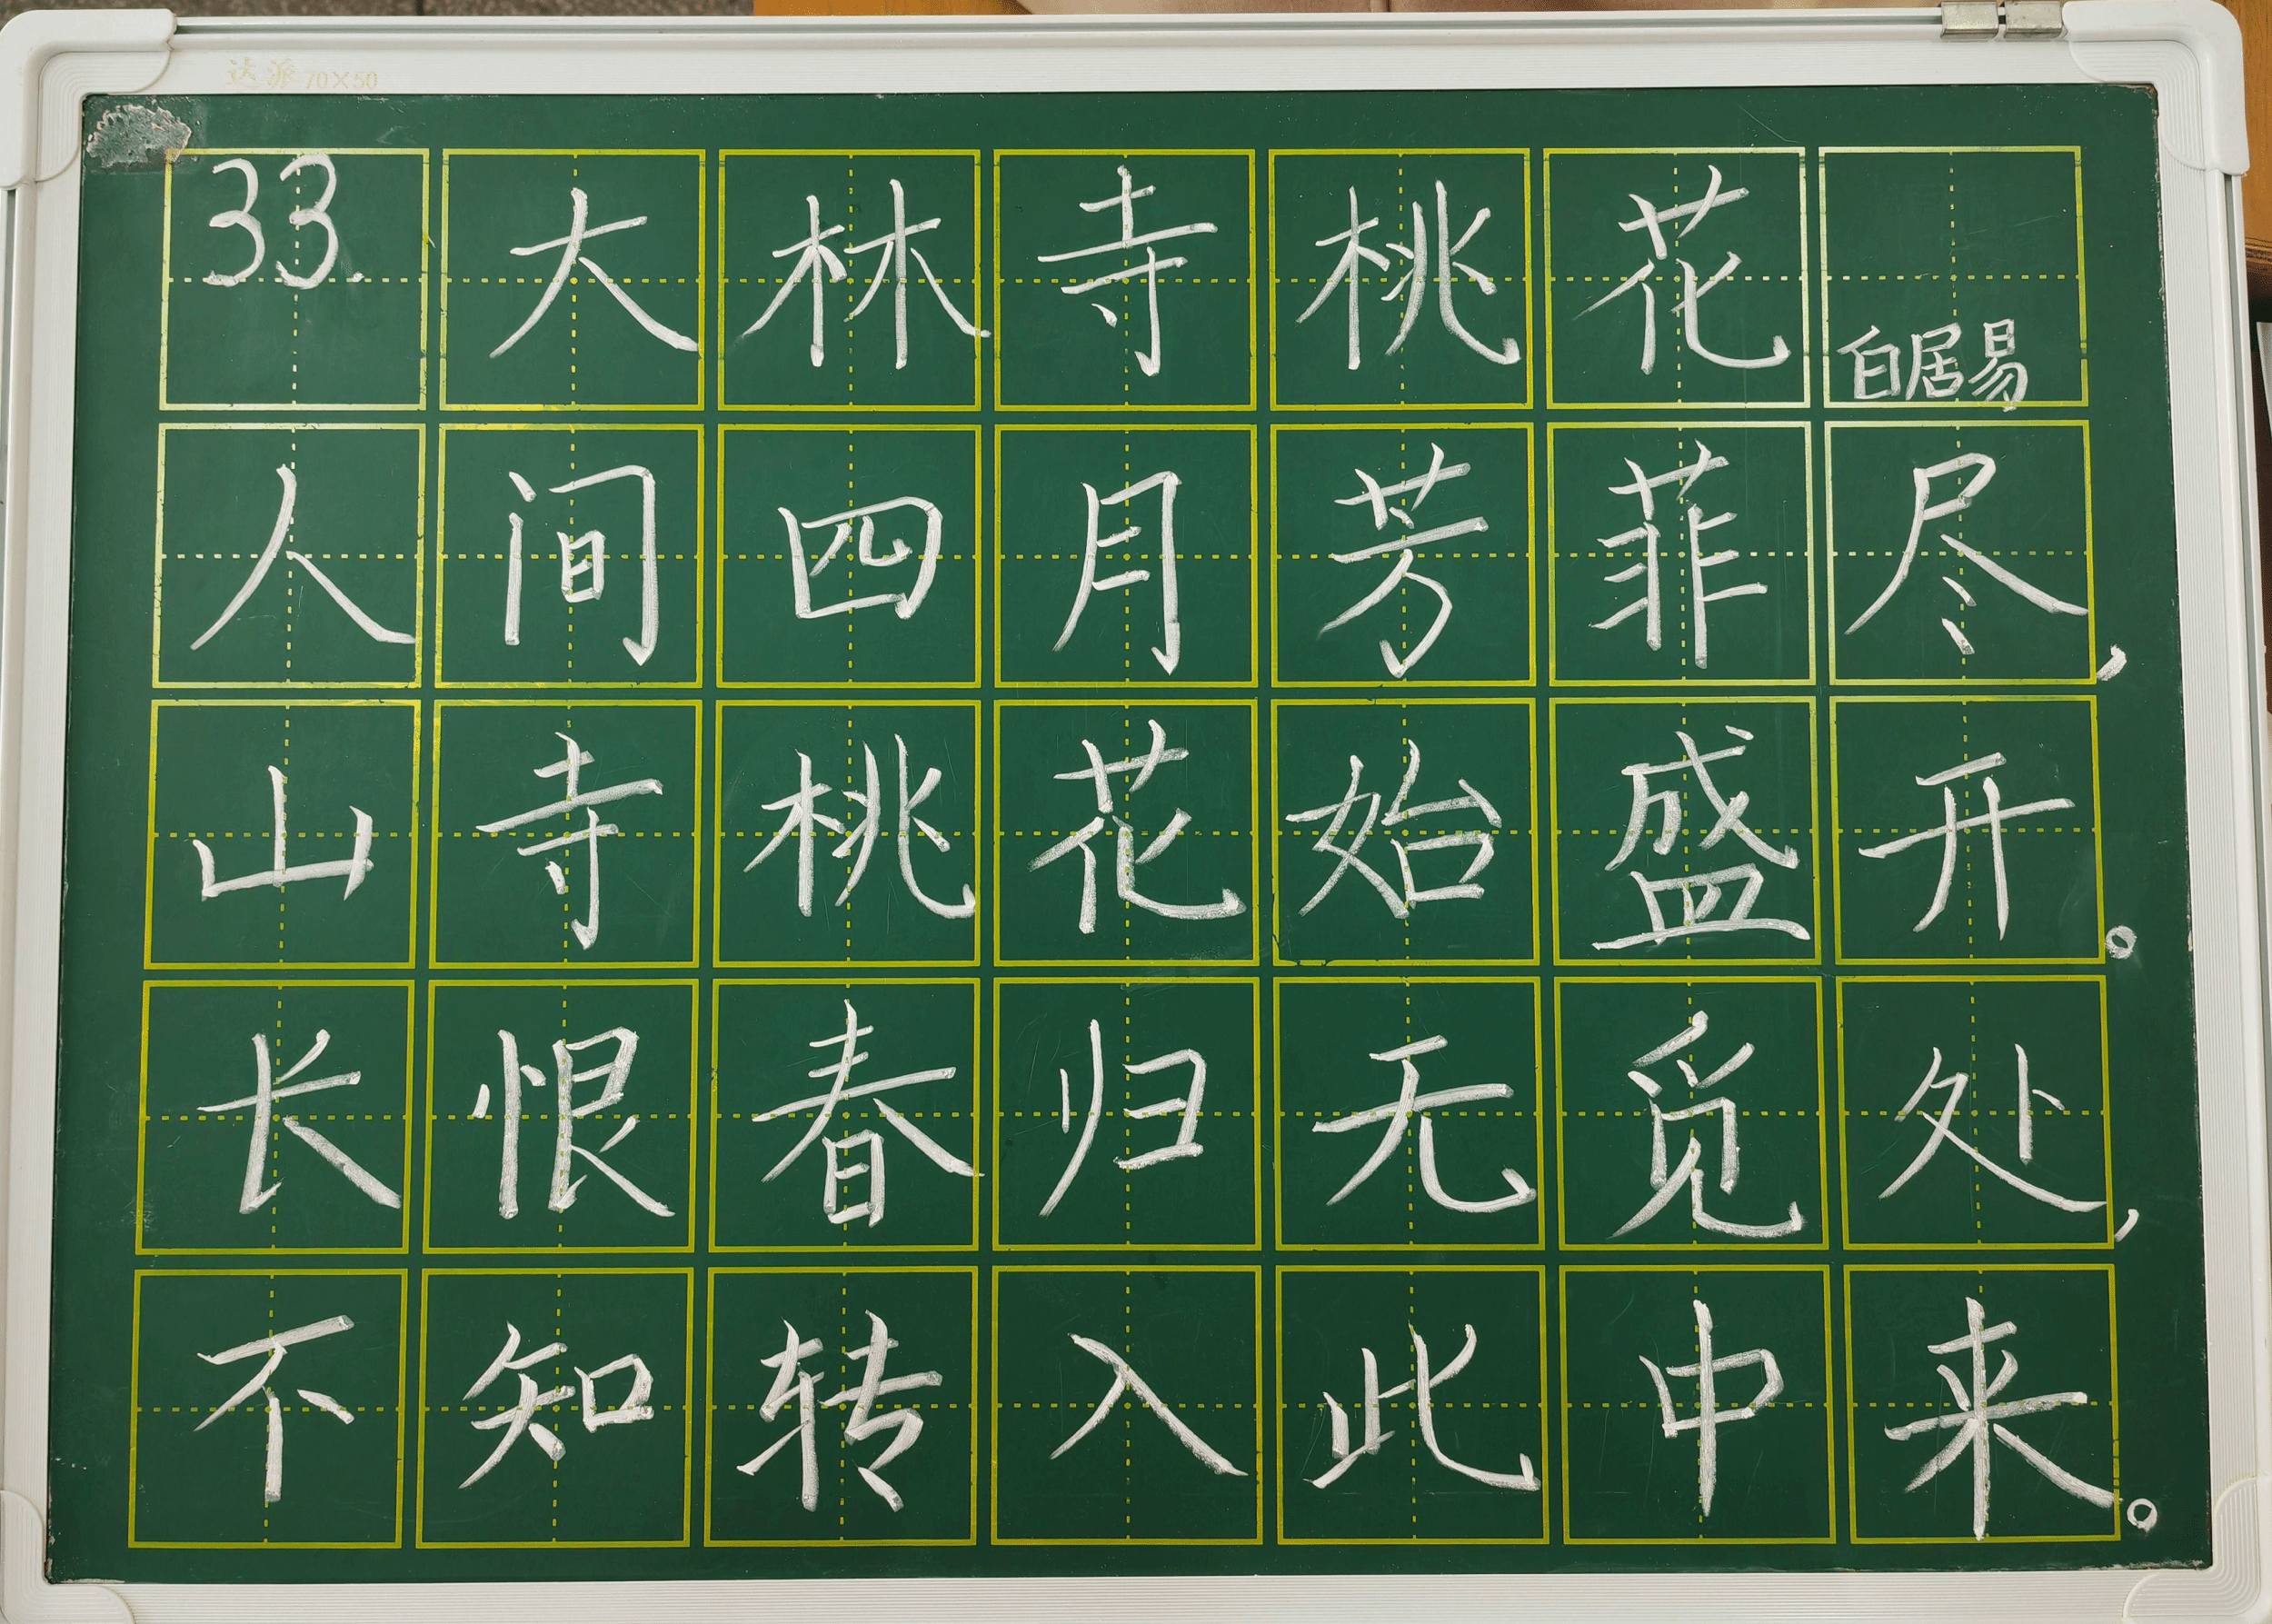 达派 70×50
33.大林寺桃花 白居易
人间四月芳菲尽,
山寺桃花始盛开。
长恨春归无觅处,
不知转入此中来。